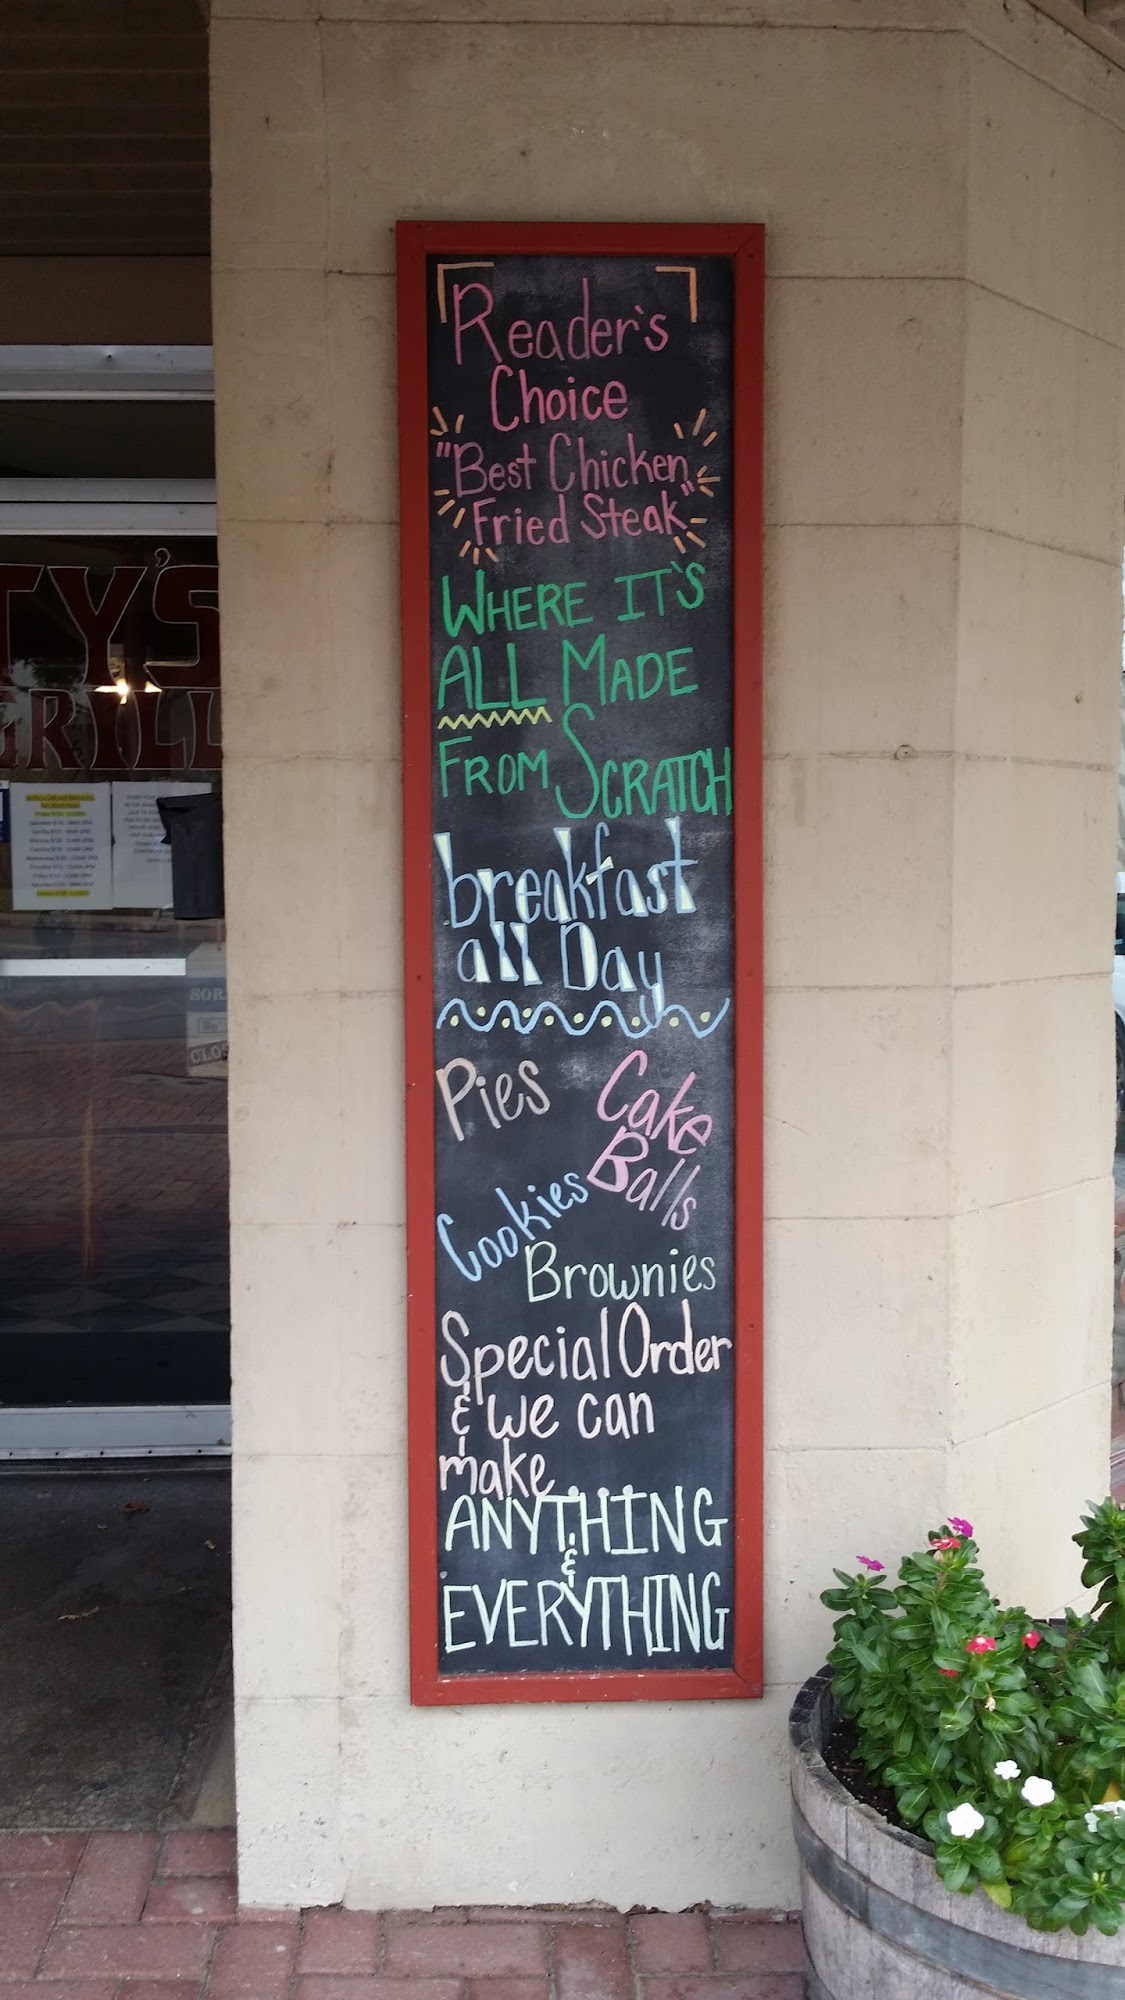 Reader's
Choice
"Best Chicken
Fried Steak"
WHERE IT'S
ALL MADE
FROM SCRATCH
breakfast
all Day
Pies
Cake
Balls
Cookies
Brownies
Special Order
& we can
make...
ANYTHING
&
EVERYTHING
TY'S
GRILL